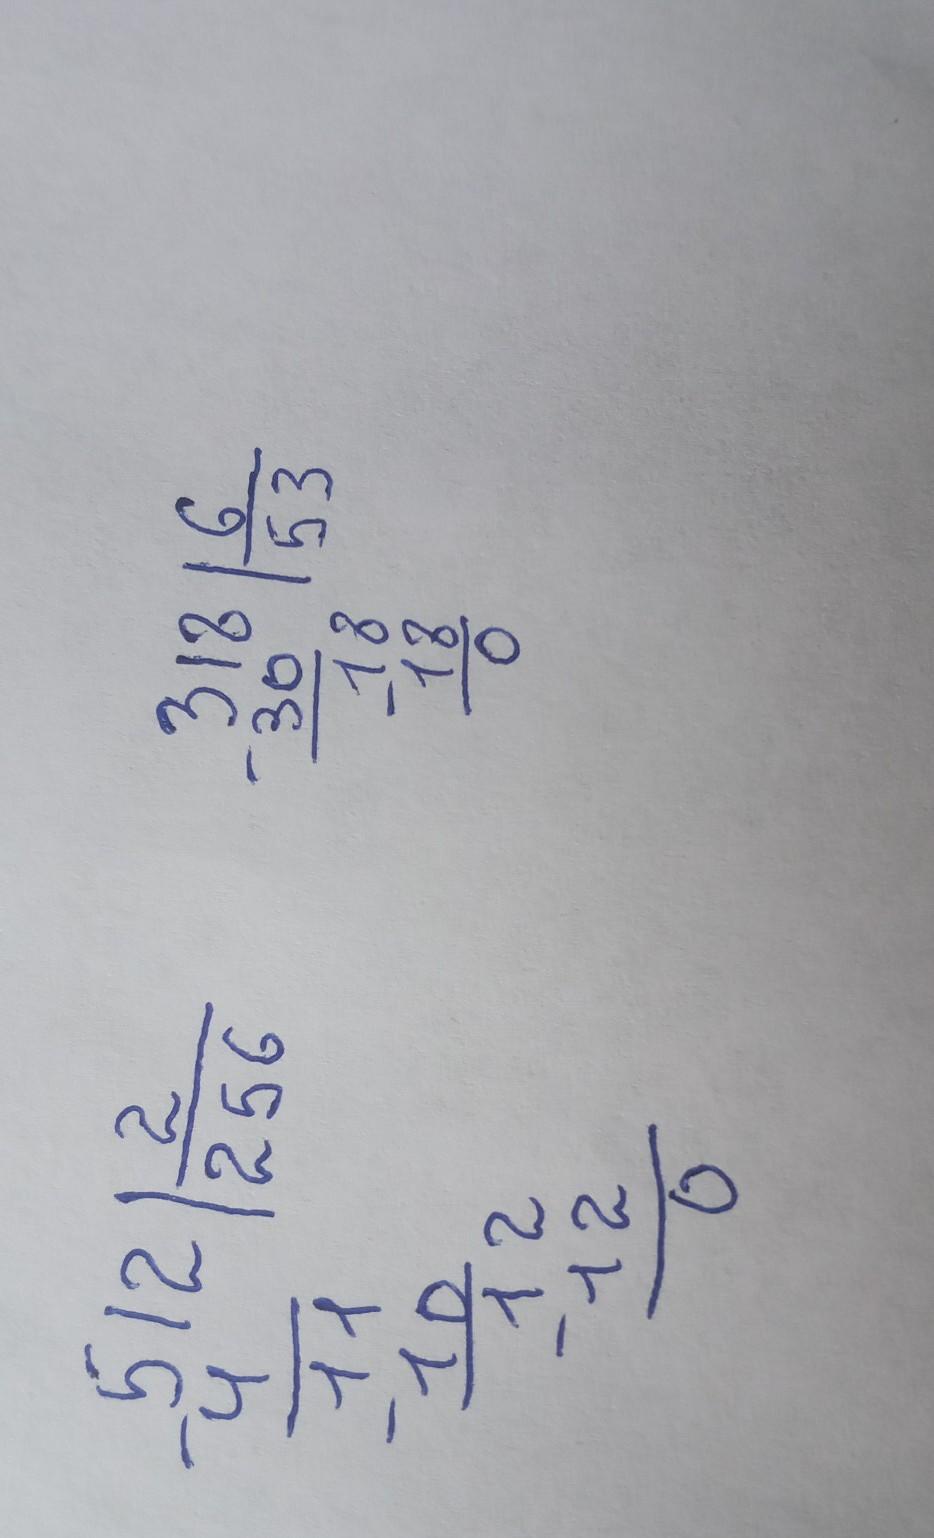 512 | 2
-4 | 256
11
-10
12
-12
0
318 | 6
-30 | 53
18
-18
0